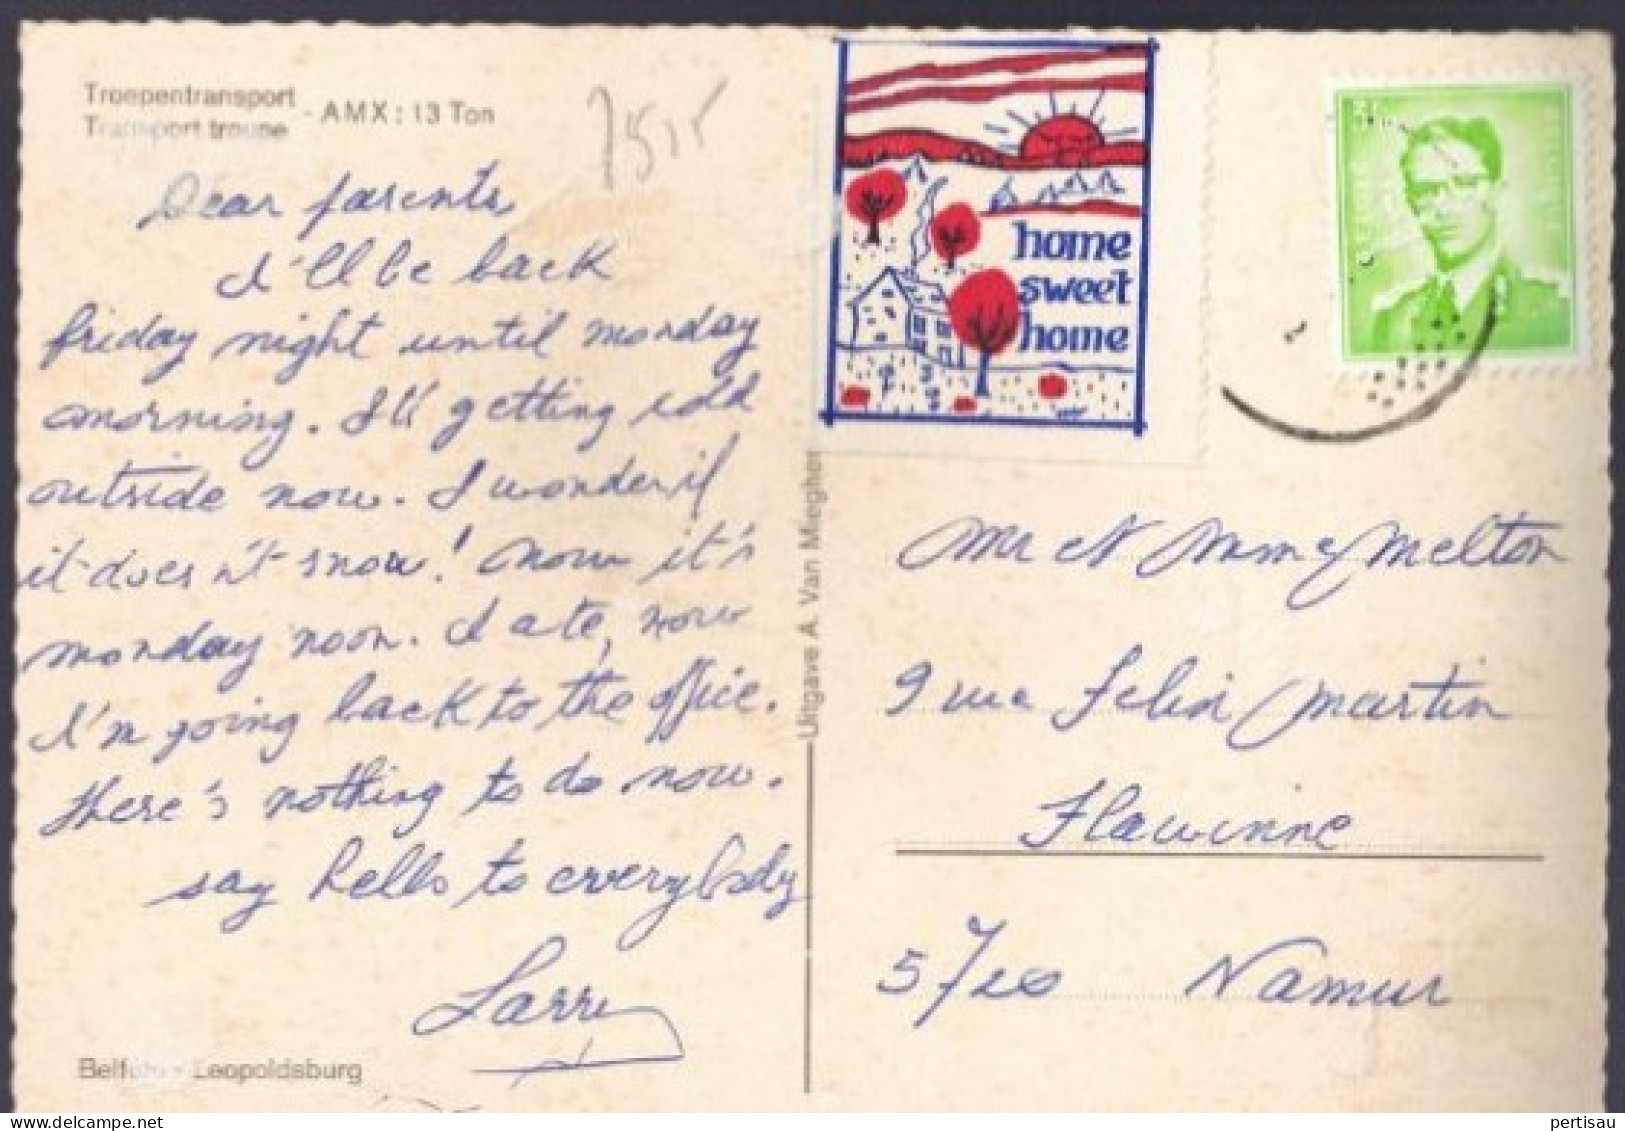 Troepentransport
Transport troupe - AMX : 13 Ton
Dear parents,
I'll be back
friday night until monday
morning. I'll getting cold
outside now. I wonder if
it doesn't snow! Now it's
monday noon. I ate, now
I'm going back to the office.
There's nothing to do now.
say hello to everybody
Larry
Belfoto - Leopoldsburg
Uitgave A. Van Mieghem
home
sweet
home
Mr et Mme Melton
9 rue Felix Martin
Flawinne
5720 Namur
pertisau